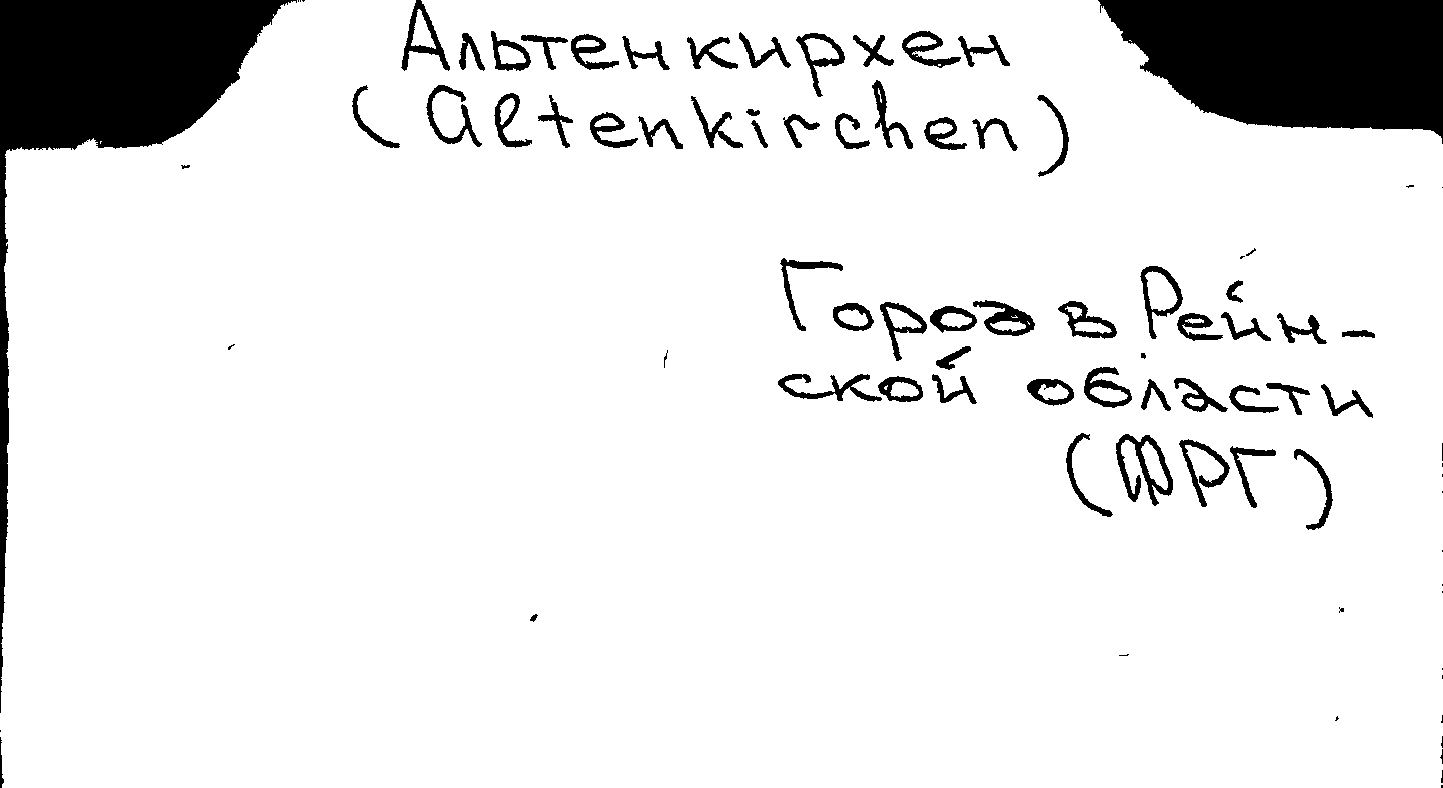 Альтенкирхен
(Altenkirchen)
Город в Рейн-
ской области
(ФРГ)